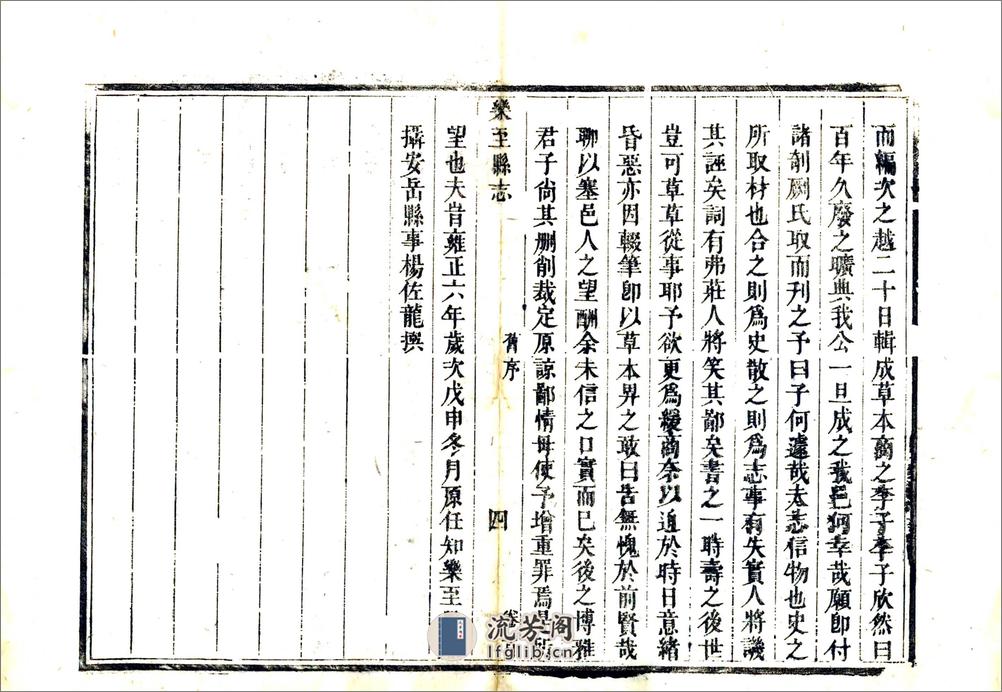 而編次之越二十日輯成草本商之李子李子欣然曰
百年久廢之曠典我公一旦成之我邑何幸哉願即付
諸剞劂氏取而刊之予曰子何遽哉夫志信物也史之
所取材也合之則爲史散之則爲志事有失實人將譏
其誣矣詞有弗莊人將笑其鄙矣書之一時壽之後世
豈可草草從事耶予欲更爲緩商奈以迫於時日意緒
昏惡亦因輟筆卽以草本畀之敢曰吿無愧於前賢哉
聊以塞邑人之望酬余未信之口實而已矣後之博雅
君子尙其刪削裁定原諒鄙情毋使予增重罪焉是所
樂至縣志
舊序
四
卷
望也夫旹雍正六年歲次戊申冬月原任知樂至
攝安岳縣事楊佐龍撰
流芳閣
lfglib.cn